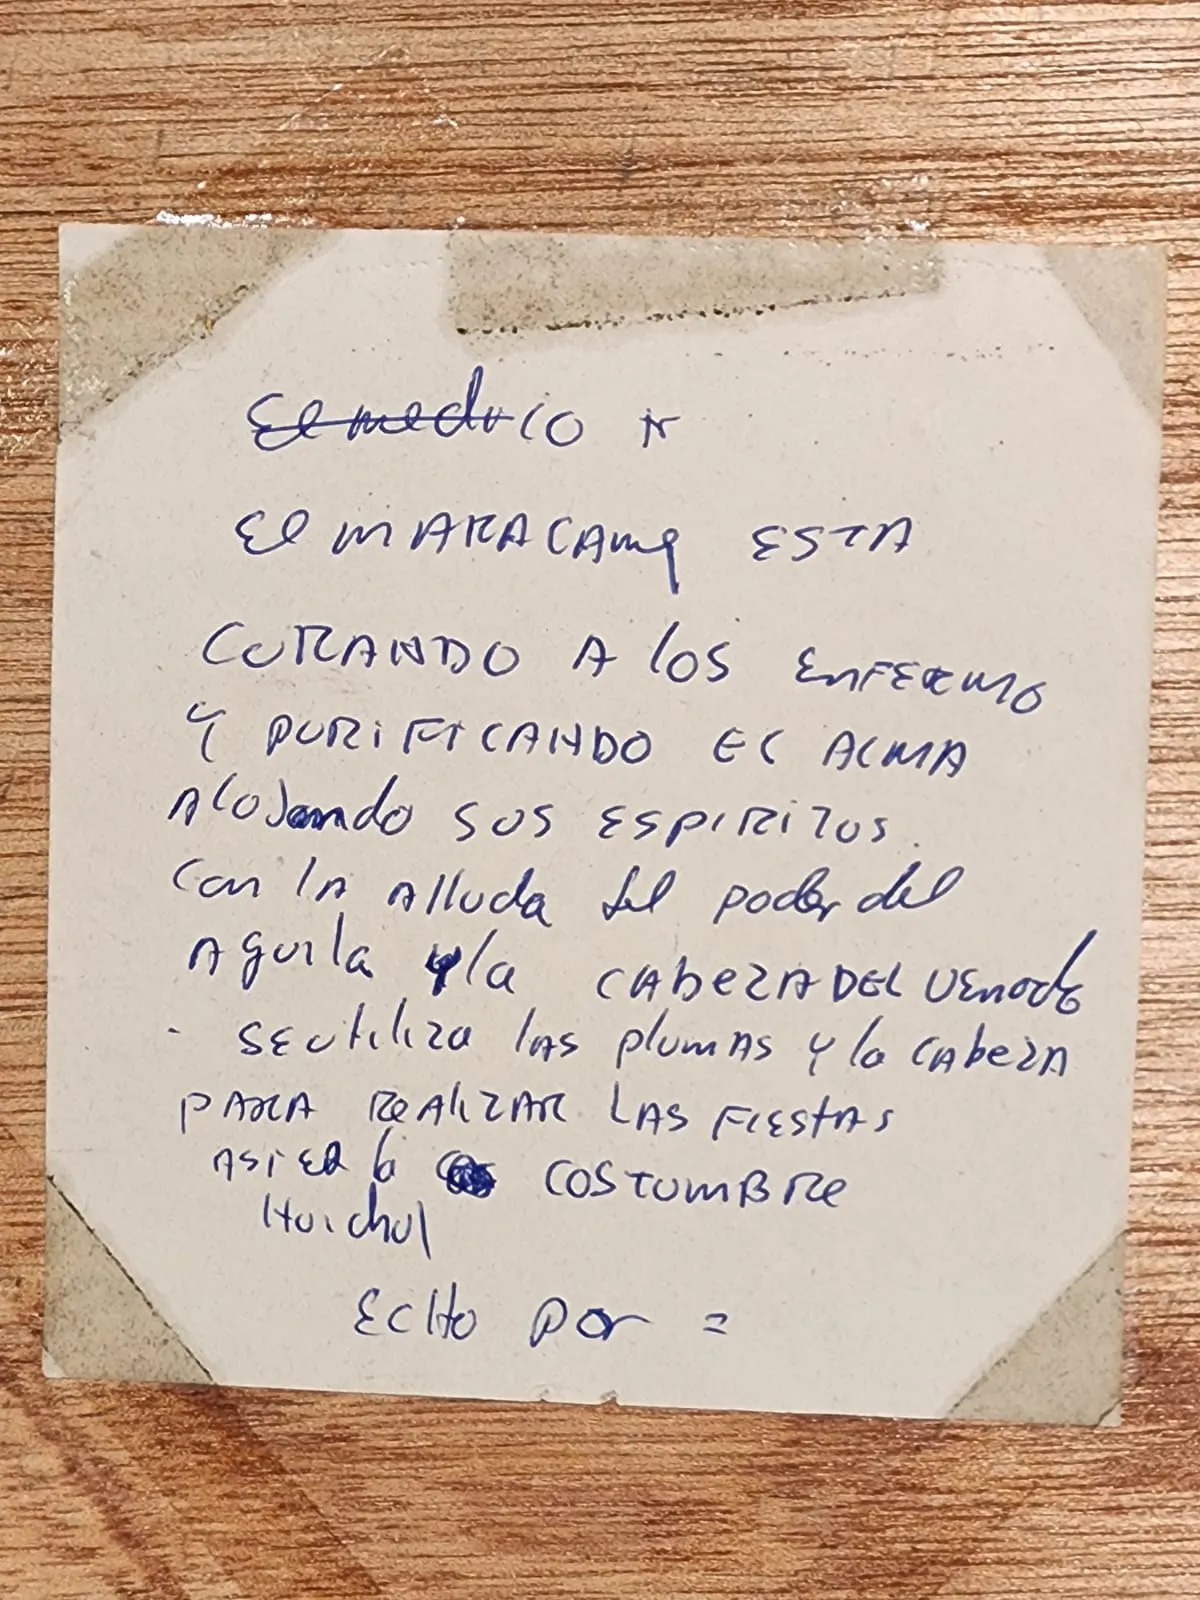 El medico *
El MARACAME ESTA
CURANDO A los ENFERMO
Y PURIFICANDO EL ALMA
Alojando SUS ESPIRITUS.
Con la Alluda del poder del
Aguila y la CAbezA DEL VENAdo
- SE utiliza las plumAs y la CAbezA
PARA REAlizAR LAS FIESTAS
ASI ES la COSTUMBRE
Huichol
ECHO por =